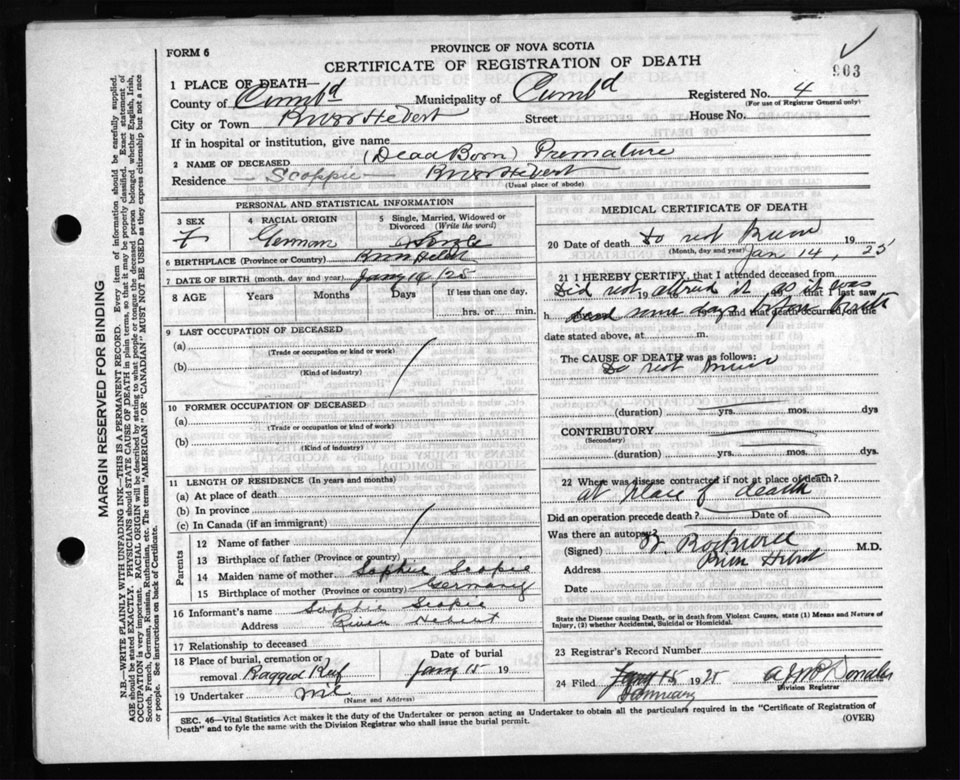 903
FORM 6
PROVINCE OF NOVA SCOTIA
CERTIFICATE OF REGISTRATION OF DEATH
1 PLACE OF DEATH—
County of Cumbd Municipality of Cumbd Registered No. 4
(For use of Registrar General only)
City or Town River Hebert Street House No.
If in hospital or institution, give name
2 NAME OF DECEASED (Dead Born) Premature
Residence — Scoppie — River Hebert
(Usual place of abode)
PERSONAL AND STATISTICAL INFORMATION
3 SEX F
4 RACIAL ORIGIN German
5 Single, Married, Widowed or Divorced (Write the word) Single
6 BIRTHPLACE (Province or Country) River Hebert
7 DATE OF BIRTH (month, day and year) Jany 14 /25
8 AGE Years Months Days If less than one day,
hrs. or min.
9 LAST OCCUPATION OF DECEASED
(a)
(Trade or occupation or kind or work)
(b)
(Kind of industry)
10 FORMER OCCUPATION OF DECEASED
(a)
(Trade or occupation or kind of work)
(b)
(Kind of industry)
11 LENGTH OF RESIDENCE (In years and months)
(a) At place of death
(b) In province
(c) In Canada (if an immigrant)
Parents
12 Name of father
13 Birthplace of father (Province or country)
14 Maiden name of mother Sophie Scopie
15 Birthplace of mother (Province or country) Germany
16 Informant's name Sophie Scopie
Address River Hebert
17 Relationship to deceased
18 Place of burial, cremation or removal Ragged Reef
Date of burial Jany 15 19
19 Undertaker
(Name and Address)
MEDICAL CERTIFICATE OF DEATH
20 Date of death Do not know 19
(Month, day and year) Jan 14, 25
21 I HEREBY CERTIFY, that I attended deceased from
Did not attend it as it was
19 to 19 that I last saw
h dead some days before birth
19 and that death occurred, on the
date stated above, at m.
The CAUSE OF DEATH was as follows:
Do not know
(duration) yrs. mos. dys
CONTRIBUTORY
(Secondary)
(duration) yrs. mos. dys
22 Where was disease contracted if not at place of death?
at place of death
Did an operation precede death? Date of
Was there an autopsy?
(Signed) Rockwell M.D.
Address River Hebert
Date
State the Disease causing Death, or in death from Violent Causes, state (1) Means and Nature of
Injury, (2) whether Accidental, Suicidal or Homicidal.
23 Registrar's Record Number
24 Filed Jany 15 1925
January
Division Registrar
SEC. 46—Vital Statistics Act makes it the duty of the Undertaker or person acting as Undertaker to obtain all the particulars required in the "Certificate of Registration of
Death" and to fyle the same with the Division Registrar who shall issue the burial permit. (OVER)
MARGIN RESERVED FOR BINDING
N.B.—WRITE PLAINLY WITH UNFADING INK—THIS IS A PERMANENT RECORD. Every item of information should be carefully supplied.
AGE should be stated EXACTLY. PHYSICIANS should STATE CAUSE OF DEATH in plain terms, so that it may be properly classified. Exact statement of
OCCUPATION is very important. RACIAL ORIGIN will be described by stating to what people or tongue the deceased person belonged whether English, Irish,
Scotch, French, German, Russian, Ruthenian, etc. The terms "AMERICAN" or "CANADIAN" MUST NOT BE USED as they express citizenship but not a race
or people. See instructions on back of Certificate.